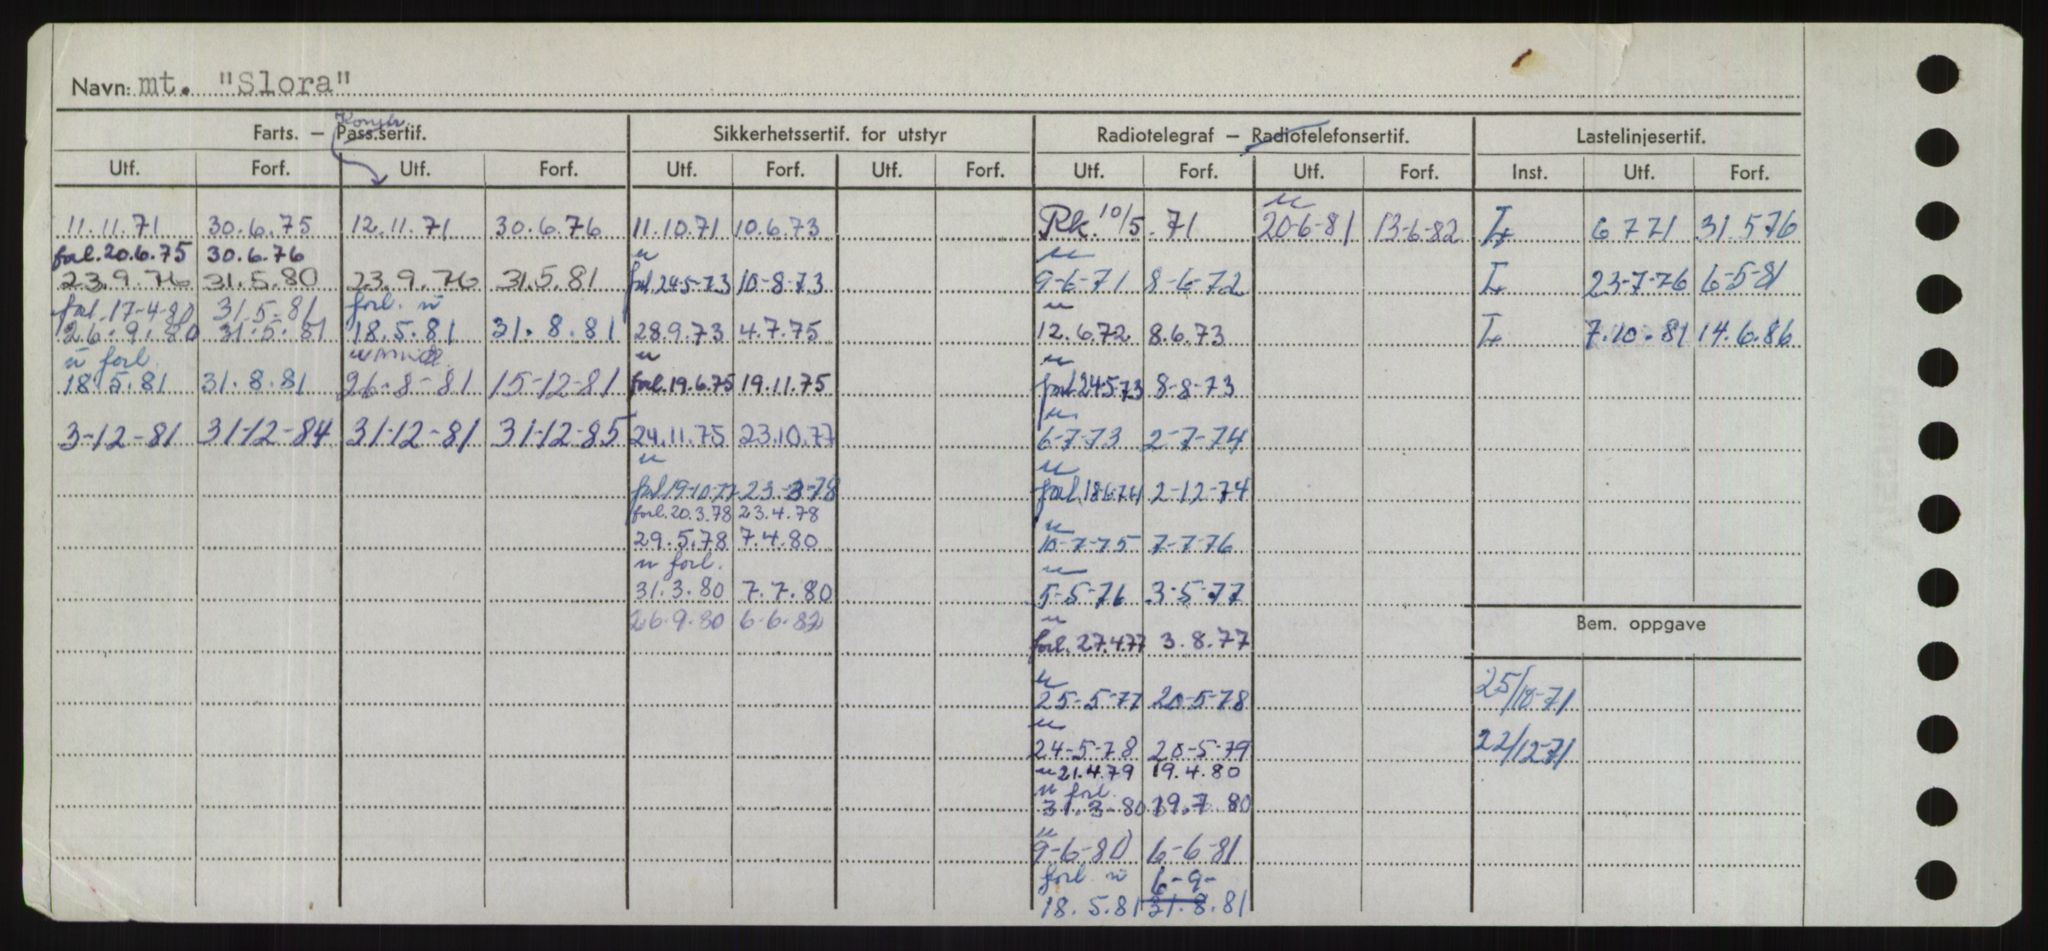 Navn: mt. "Slora"
Konstr.
Farts. — Pass.sertif. Sikkerhetssertif. for utstyr Radiotelegraf — Radiotelefonsertif. Lastelinjesertif.
Utf. Forf. Utf. Forf. Utf. Forf. Utf. Forf. Utf. Forf. Utf. Forf. Inst. Utf. Forf.
u
11.11.71 30.6.75 12.11.71 30.6.76 11.10.71 10.6.73 Rk. 10/5.71 20-6-81 13-6-82 L 6 7 71 31.5 76
forl. 20.6.75 30.6.76 u u
23.9.76 31.5.80 23.9.76 31.5.81 forl 24-5-73 10-8-73 9-6-71 8-6-72 L 23-7-76 6-5-81
forl. 17-4-80 31.5.81 forl. u u
26.9.80 31.5.81 18.5.81 31.8.81 28.9.73 4.7.75 12.6.72 8.6.73 L 7.10.81 14.6.86
u forl. u u
18.5.81 31.8.81 26-8-81 15-12-81 forl. 19.6.75 19.11.75 forl 24.5.73 8-8-73
u
3-12-81 31-12-84 31-12-81 31-12-85 24.11.75 23.10.77 6-7-73 2-7-74
u u
forl 19-10-77 23-3-78 forl. 18.6.74 2-12-74
forl. 20.3.78 23.4.78 u
29.5.78 7.4.80 10-7-75 7-7-76
u forl. u
31.3.80 7.7.80 5-5-76 3-5-77
26.9.80 6-6-82 u
Bem. oppgave
forl. 27.4.77 3.8.77
u
25-5-77 20-5-78 25/10-71
u
24-5-78 20-5-79 22/12-71
u 21.4.79 19.4.80
u forl.
31.3-80 19.7.80
u
9-6-80 6-6-81
forl. u 6-9-
18.5.81 31.8.81